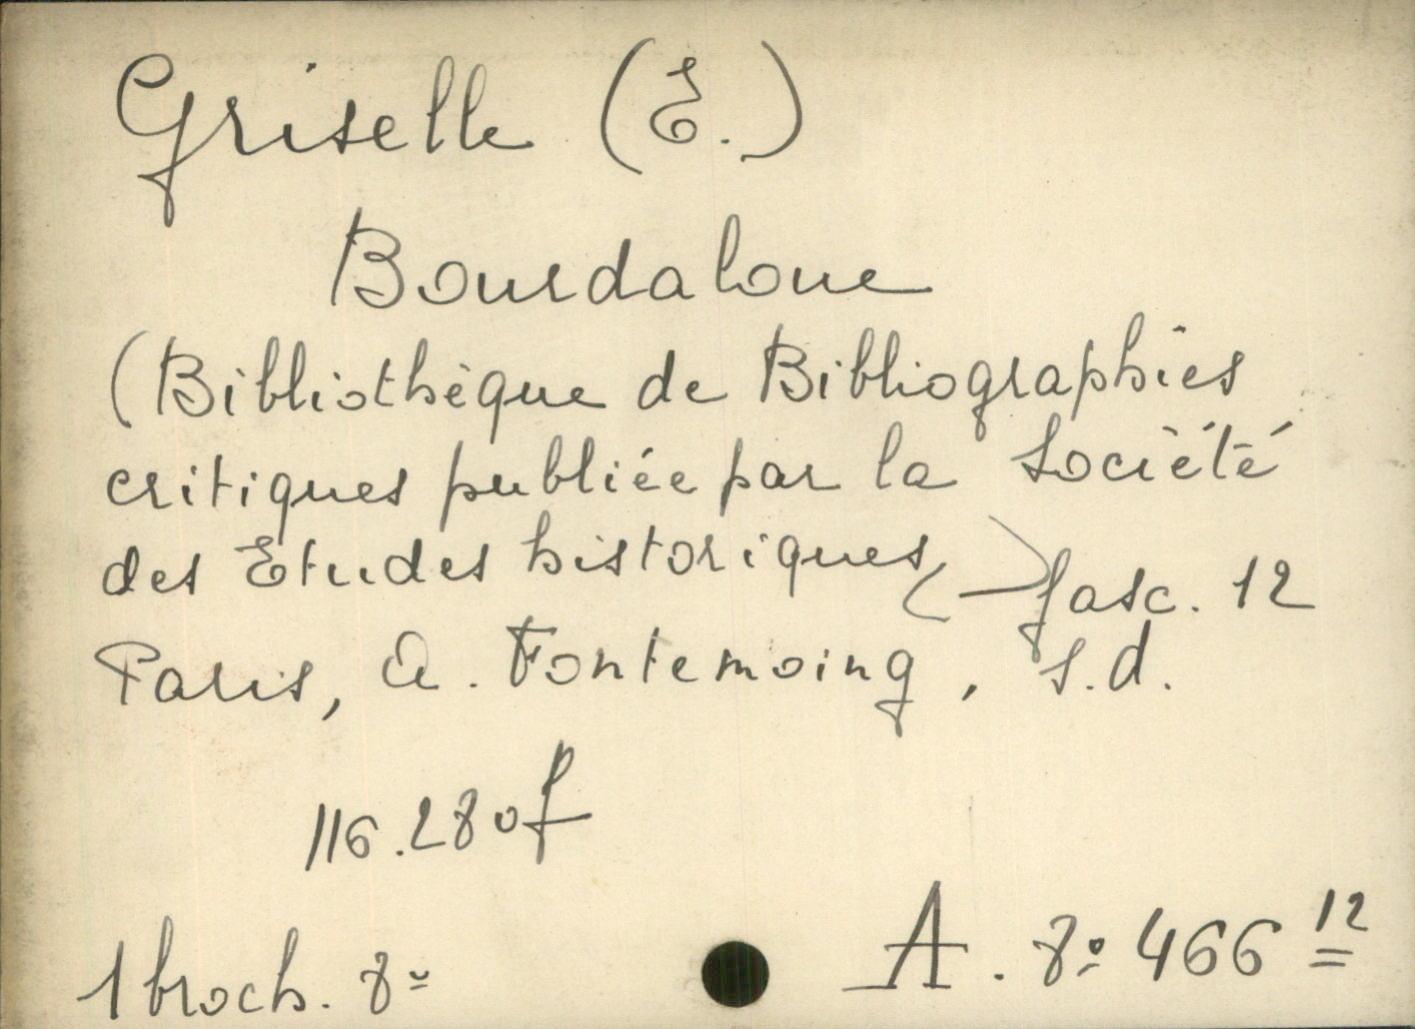 Griselle (E.)
Bourdaloue
(Bibliothèque de Bibliographies
critiques publiée par la Société
des Etudes historiques) fasc. 12
Paris, A. Fontemoing, s.d.
116.280 f
1 broch. 8º
A. 8º 466 12